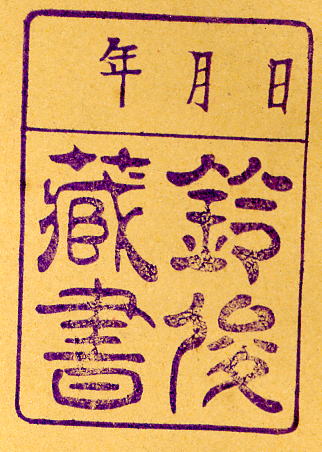 年月日
鈴俊
藏書